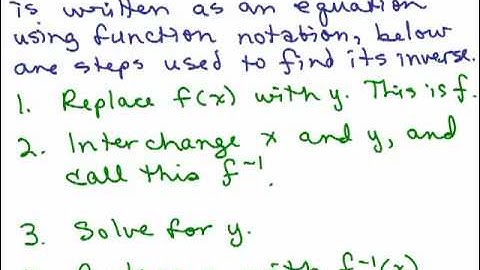 is written as an equation
using function notation, below
are steps used to find its inverse.
1. Replace f(x) with y. This is f.
2. Interchange x and y, and
call this f⁻¹.
3. Solve for y.
with f⁻¹(x)